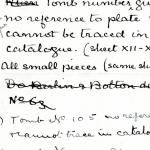 Tomb number gu
no reference to plate
cannot be traced in
catalogue. (sheet XII-X
All small pieces (same sh
No 63
Tomb No 105 no refere
cannot trace in catalo